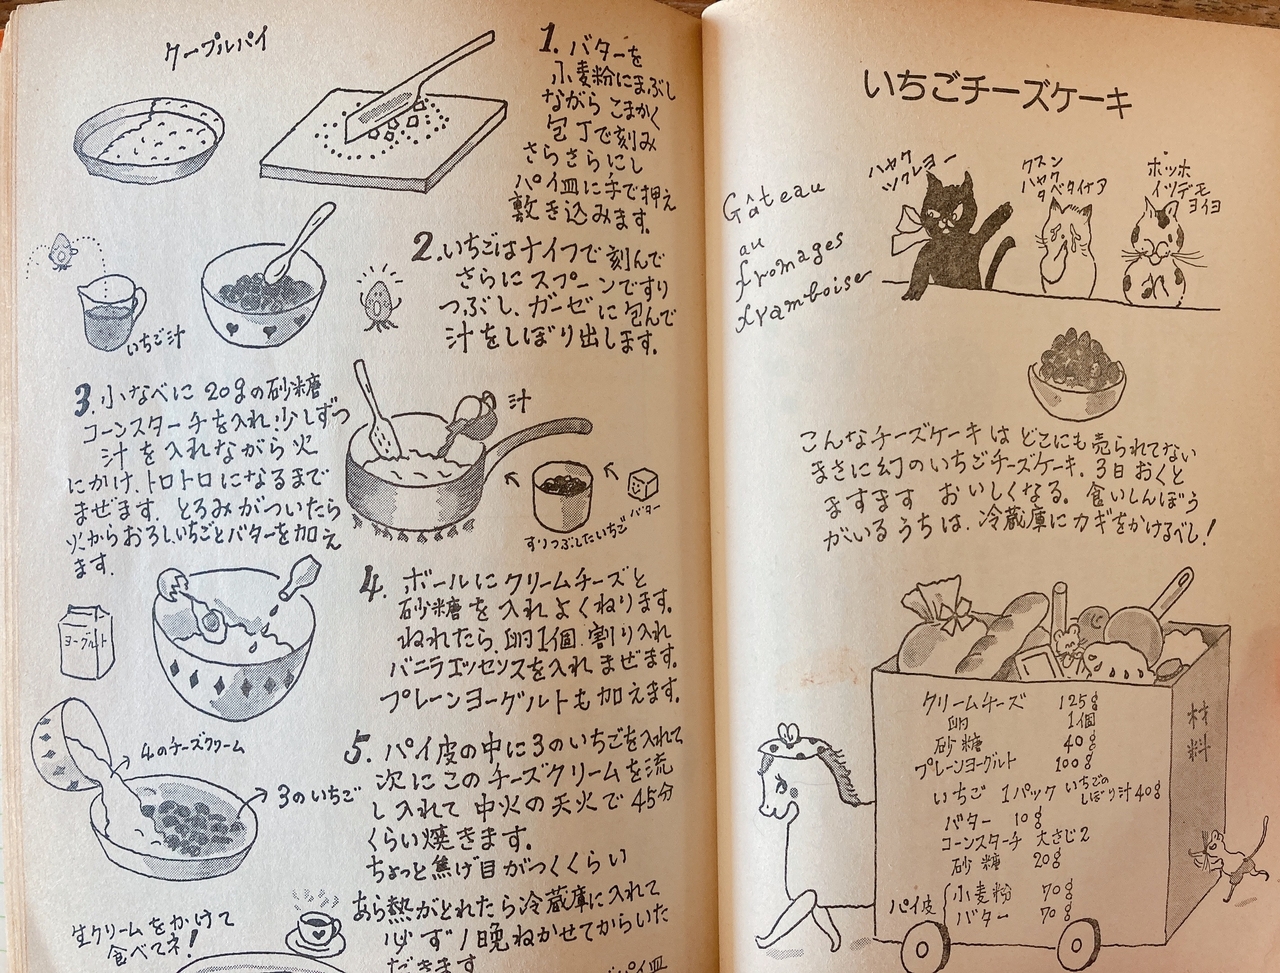 いちごチーズケーキ
Gâteau
au
fromages
framboise
ハヤク
ツクレヨー
クスン
ハヤク
タベタイナア
ホッホ
イツデモ
ヨイヨ
こんなチーズケーキは どこにも売られてない
まさに幻のいちごチーズケーキ. 3日おくと
ますます おいしくなる。食いしんぼう
がいるうちは、冷蔵庫にカギをかけるべし!
材料
クリームチーズ 125g
卵 1個
砂糖 40g
プレーンヨーグルト 100g
いちご 1パック いちごの
しぼり汁40g
バター 10g
コーンスターチ 大さじ2
砂糖 20g
パイ皮 小麦粉 70g
バター 70g
ケーブルパイ
1. バターを
小麦粉にまぶし
ながら こまかく
包丁で刻み
さらさらにし
パイ皿に手で押え
敷き込みます。
2.いちごはナイフで刻んで
さらにスプーンですり
つぶし、ガーゼに包んで
汁をしぼり出します。
いちご汁
3. 小なべに 20gの砂糖
コーンスターチを入れ.少しずつ
汁を入れながら火
にかけ、トロトロになるまで
まぜます。とろみがついたら
火からおろしいちごとバターを加え
ます.
汁
すりつぶしたいちご
バター
4. ボールにクリームチーズと
砂糖を入れよくねります。
ねれたら、卵1個.割り入れ
バニラエッセンスを入れまぜます。
プレーンヨーグルトも加えます。
ヨーグルト
5. パイ皮の中に3のいちごを入れて
次にこのチーズクリームを流
し入れて 中火の天火で45分
くらい焼きます。
ちょっと焦げ目がつくくらい
4のチーズクリーム
3のいちご
あら熱がとれたら冷蔵庫に入れて
必ず1晩ねかせてからいた
だきます
生クリームをかけて
食べてネ!
パイ皿